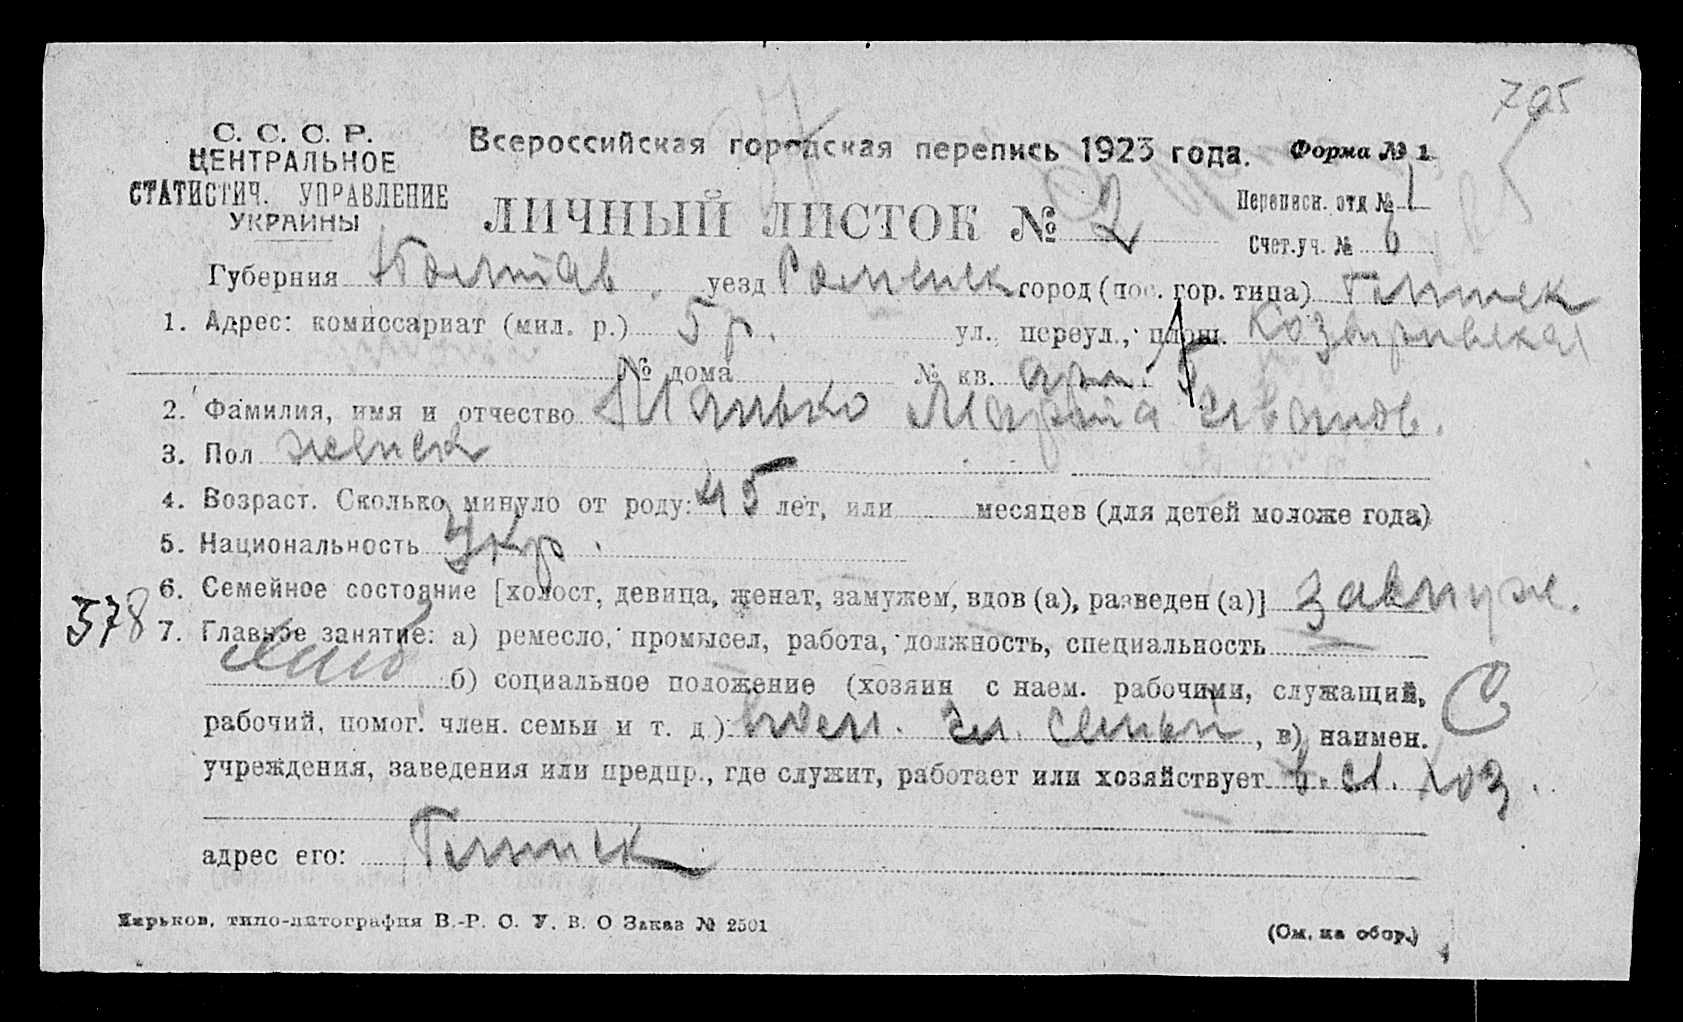 795
С. С. С. Р.
ЦЕНТРАЛЬНОЕ
СТАТИСТИЧ. УПРАВЛЕНИЕ
УКРАИНЫ
Всероссийская городская перепись 1923 года. Форма № 1
ЛИЧНЫЙ ЛИСТОК № 2
Переписн. отд № 1
Счет.уч. № 6
Губерния Полтав. уезд Роменск город (пос. гор. типа) Глинск
1. Адрес: комиссариат (мил. р.) 5 р. ул., переул., площ.
№ дома № кв.
2. Фамилия, имя и отчество Манько Марфа Иванов.
3. Пол женск
4. Возраст. Сколько минуло от роду: 45 лет, или месяцев (для детей моложе года)
5. Национальность Укр.
6. Семейное состояние [холост, девица, женат, замужем, вдов (а), разведен (а)] замуж.
578 7. Главное занятие: а) ремесло, промысел, работа, должность, специальность —
б) социальное положение (хозяин с наем. рабочими, служащий,
рабочий, помог. член. семьи и т. д.): пом. чл. семьи, в) наимен.
учреждения, заведения или предпр., где служит, работает или хозяйствует в с. хоз.
адрес его: Глинск
Харьков, типо-литография В.-Р. С. У. В. О Заказ № 2501
(См. на обор.)